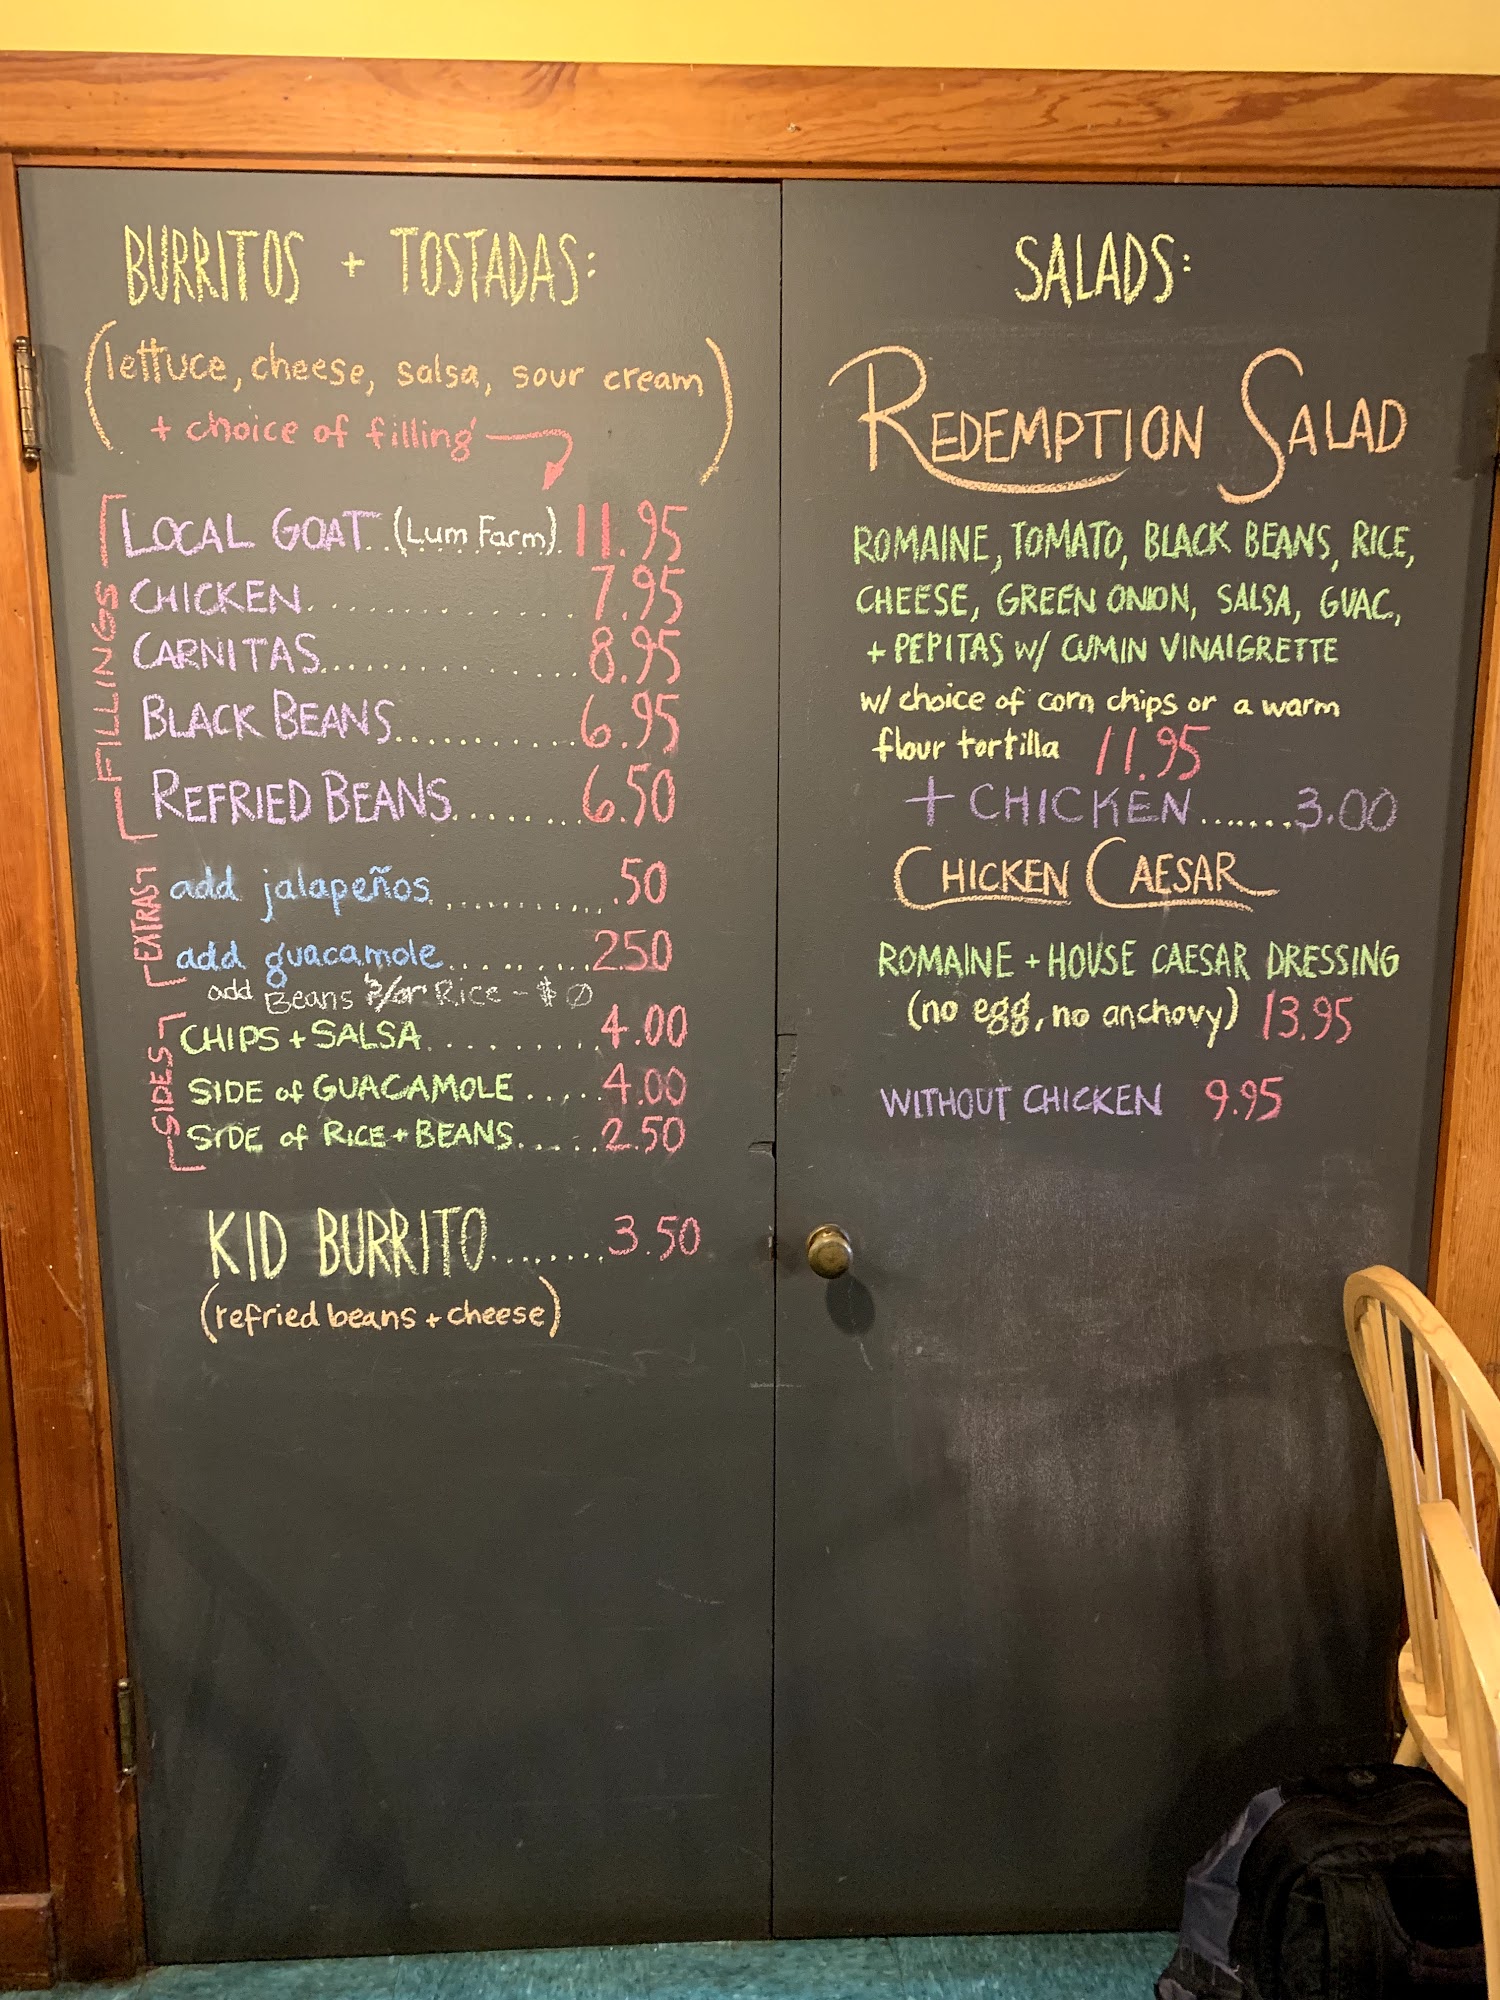 BURRITOS + TOSTADAS:
(lettuce, cheese, salsa, sour cream
+ choice of filling)
FILLINGS
LOCAL GOAT..(Lum Farm). 11.95
CHICKEN.............. 7.95
CARNITAS.............. 8.95
BLACK BEANS........... 6.95
REFRIED BEANS......... 6.50
EXTRAS
add jalapeños........... .50
add guacamole......... 250
add Beans &/or Rice - $ 0
SIDES
CHIPS + SALSA.......... 4.00
SIDE of GUACAMOLE..... 4.00
SIDE of RICE + BEANS..... 2.50
KID BURRITO........ 3.50
(refried beans + cheese)
SALADS:
REDEMPTION SALAD
ROMAINE, TOMATO, BLACK BEANS, RICE,
CHEESE, GREEN ONION, SALSA, GUAC,
+ PEPITAS W/ CUMIN VINAIGRETTE
w/ choice of corn chips or a warm
flour tortilla 11.95
+ CHICKEN.......3.00
CHICKEN CAESAR
ROMAINE + HOUSE CAESAR DRESSING
(no egg, no anchovy) 13.95
WITHOUT CHICKEN 9.95